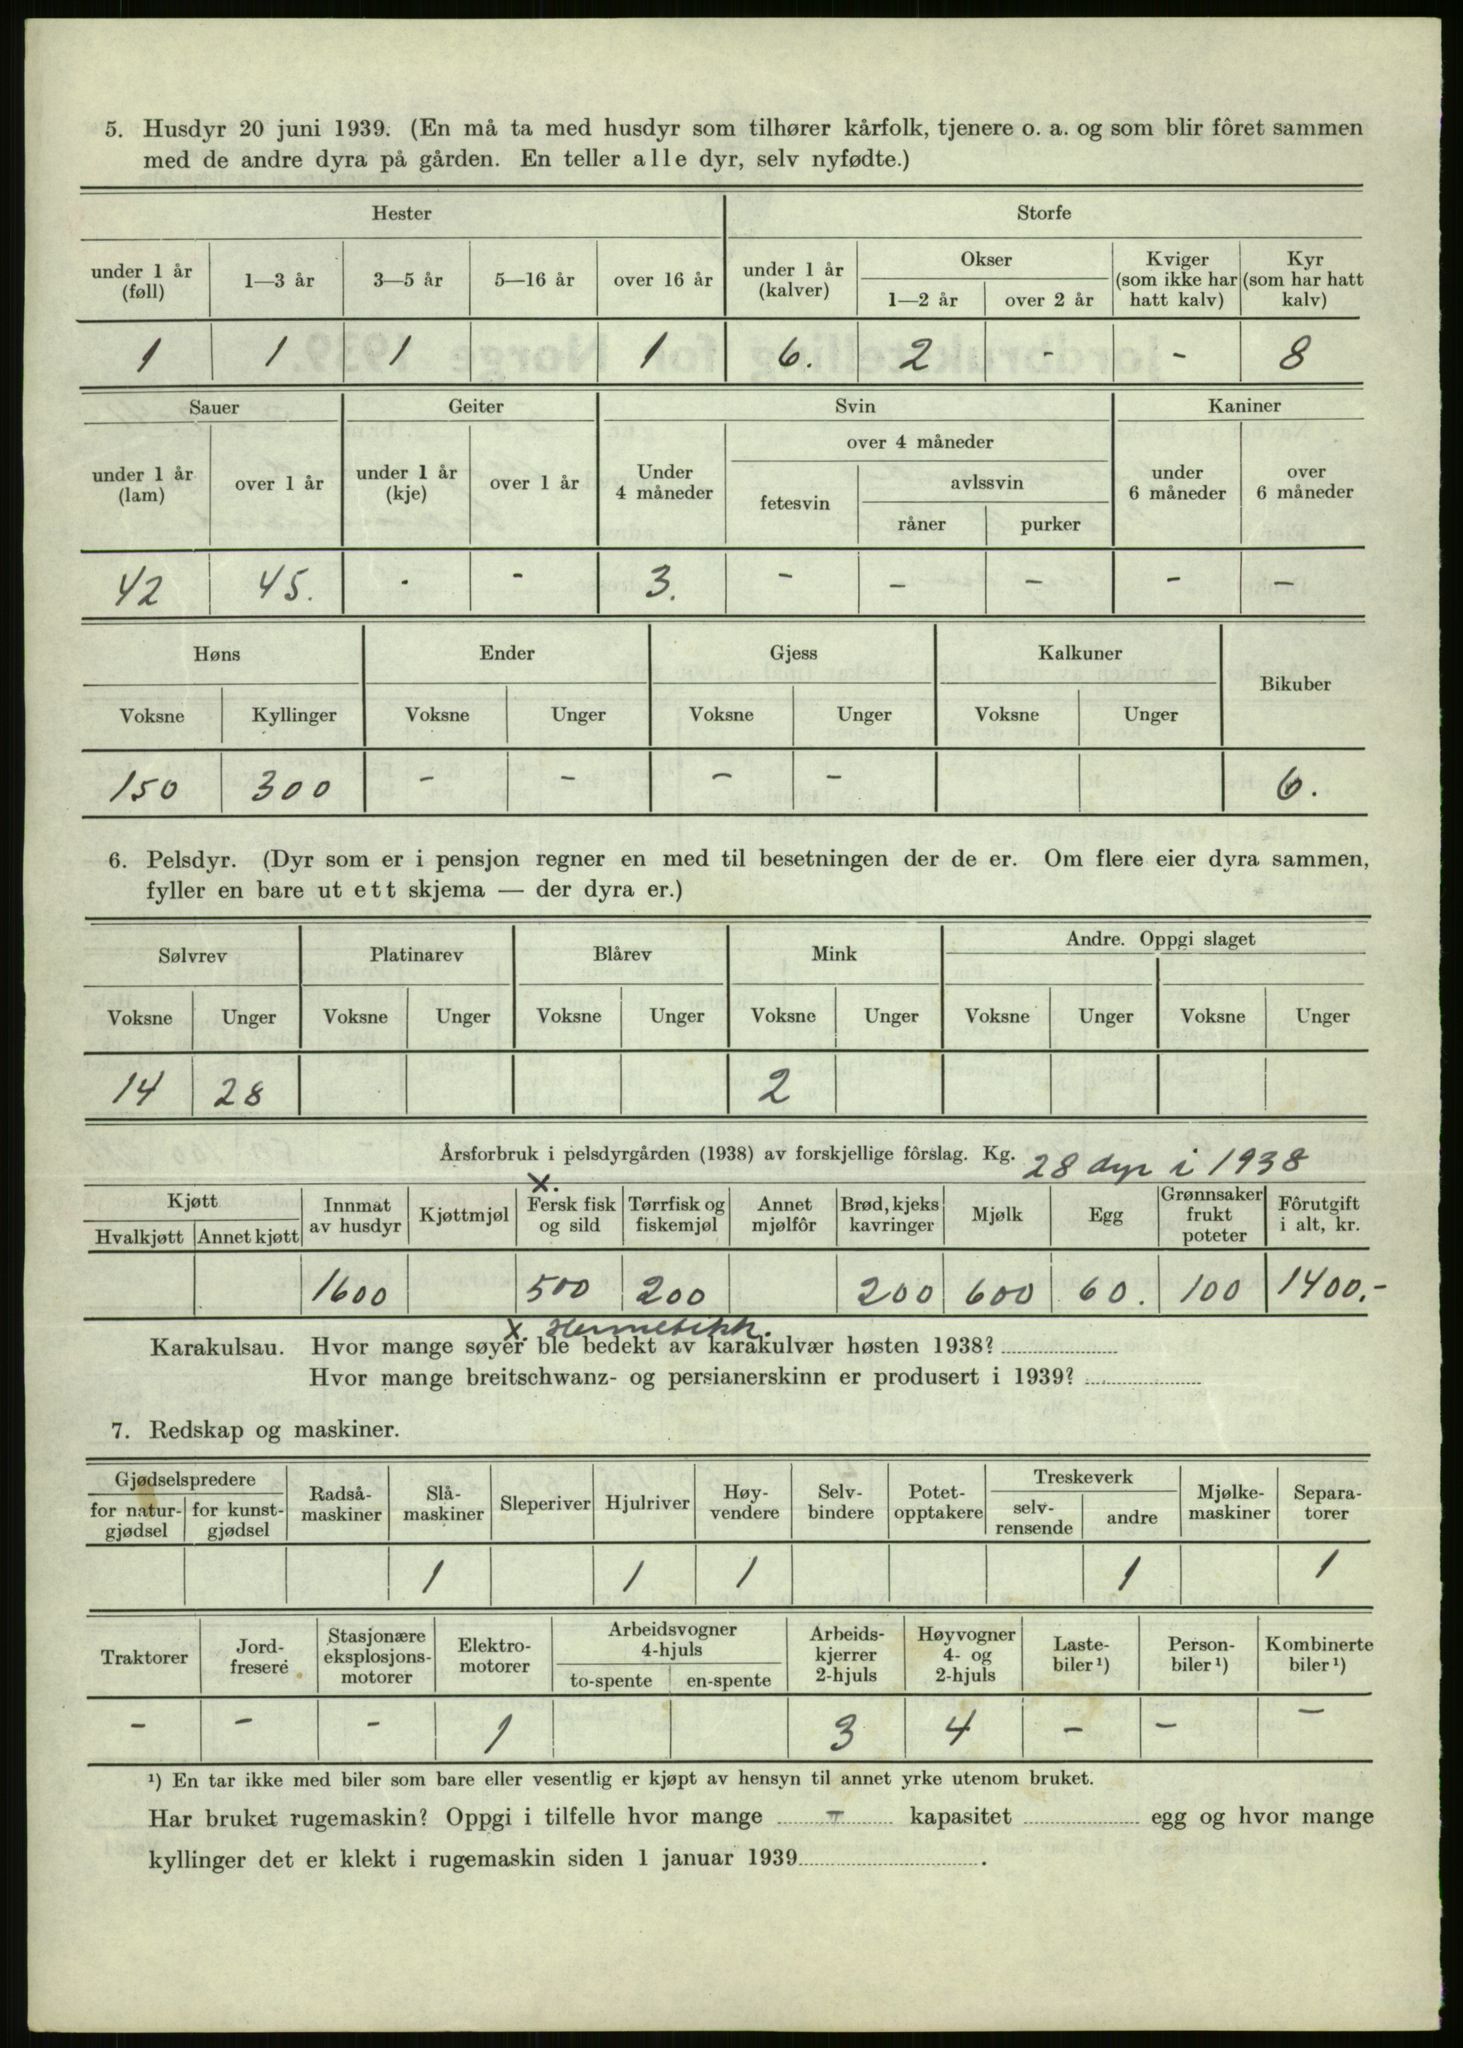 5. Husdyr 20 juni 1939. (En må ta med husdyr som tilhører kårfolk, tjenere o. a. og som blir fôret sammen
med de andre dyra på gården. En teller alle dyr, selv nyfødte.)
Hester Storfe
under 1 år (føll) 1—3 år 3—5 år 5—16 år over 16 år under 1 år (kalver) Okser 1—2 år over 2 år Kviger (som ikke har hatt kalv) Kyr (som har hatt kalv)
1 1 1 1 6. 2 - - 8
Sauer Geiter Svin Kaniner
over 4 måneder
under 1 år (lam) over 1 år under 1 år (kje) over 1 år Under 4 måneder fetesvin avlssvin råner purker under 6 måneder over 6 måneder
42 45. - - 3. - - - - -
Høns Ender Gjess Kalkuner Bikuber
Voksne Kyllinger Voksne Unger Voksne Unger Voksne Unger
150 300 - - - - 6.
6. Pelsdyr. (Dyr som er i pensjon regner en med til besetningen der de er. Om flere eier dyra sammen,
fyller en bare ut ett skjema — der dyra er.)
Sølvrev Platinarev Blårev Mink Andre. Oppgi slaget
Voksne Unger Voksne Unger Voksne Unger Voksne Unger Voksne Unger Voksne Unger
14 28 2
Årsforbruk i pelsdyrgården (1938) av forskjellige fôrslag. Kg. 28 dyr i 1938
x.
Kjøtt Hvalkjøtt Annet kjøtt Innmat av husdyr Kjøttmjøl Fersk fisk og sild Tørrfisk og fiskemjøl Annet mjølfôr Brød, kjeks kavringer Mjølk Egg Grønnsaker frukt poteter Fôrutgift i alt, kr.
1600 500 200 200 600 60. 100 1400.-
x. Hermetikk.
Karakulsau. Hvor mange søyer ble bedekt av karakulvær høsten 1938?
Hvor mange breitschwanz- og persianerskinn er produsert i 1939?
7. Redskap og maskiner.
Gjødselspredere for natur-gjødsel for kunst-gjødsel Radså-maskiner Slå-maskiner Sleperiver Hjulriver Høy-vendere Selv-bindere Potet-opptakere Treskeverk selv-rensende andre Mjølke-maskiner Separa-torer
1 1 1 1 1
Traktorer Jord-fresere Stasjonære eksplosjons-motorer Elektro-motorer Arbeidsvogner 4-hjuls to-spente en-spente Arbeids-kjerrer 2-hjuls Høyvogner 4- og 2-hjuls Laste-biler¹) Person-biler¹) Kombinerte biler¹)
- - - 1 3 4 - - -
¹) En tar ikke med biler som bare eller vesentlig er kjøpt av hensyn til annet yrke utenom bruket.
Har bruket rugemaskin? Oppgi i tilfelle hvor mange kapasitet egg og hvor mange
kyllinger det er klekt i rugemaskin siden 1 januar 1939 .